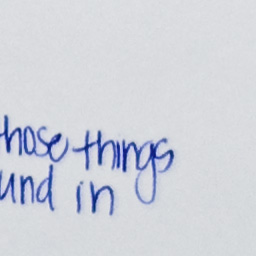 those things
und in